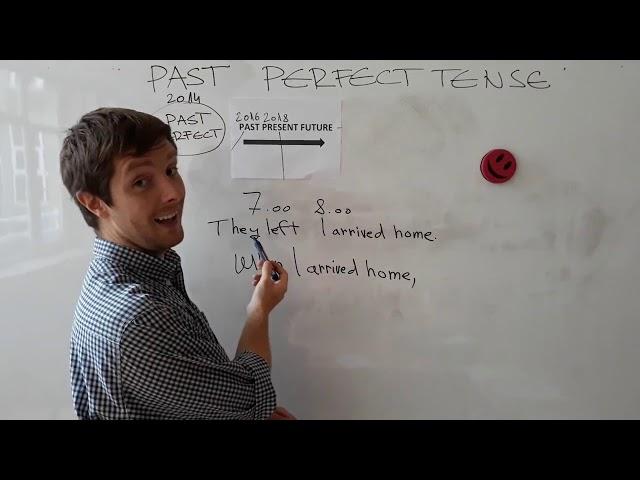 PAST PERFECT TENSE
2014
PAST
PERFECT
2016 2018
PAST PRESENT FUTURE
7.00 8.00
They left I arrived home.
When I arrived home,